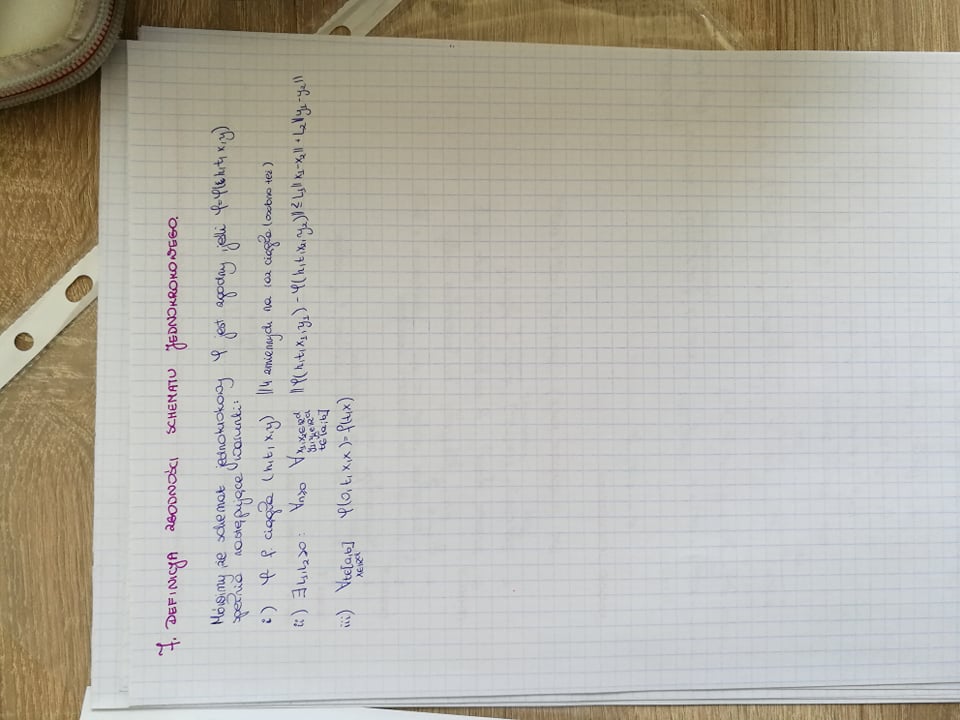 7. DEFINICJA ZGODNOŚCI SCHEMATU JEDNOKROKOWEGO.
Mówimy że schemat jednokrokowy φ jest zgodny, jeśli φ=φ(h,t,x,y)
spełnia następujące warunki:
i) φ f. ciągła (h,t,x,y) //4 zmiennych na raz ciągła (osobno też)
ii) ∃L₁,L₂>0: ∀h>0 ∀x₁,x₂∈ℝᵈ ‖φ(h,t,x₁,y₁) - φ(h,t,x₂,y₂)‖ ≤ L₁‖x₁-x₂‖ + L₂‖y₁-y₂‖
y₁,y₂∈ℝᵈ
t∈[a,b]
iii) ∀t∈[a,b] φ(0,t,x,x)=f(t,x)
x∈ℝᵈ